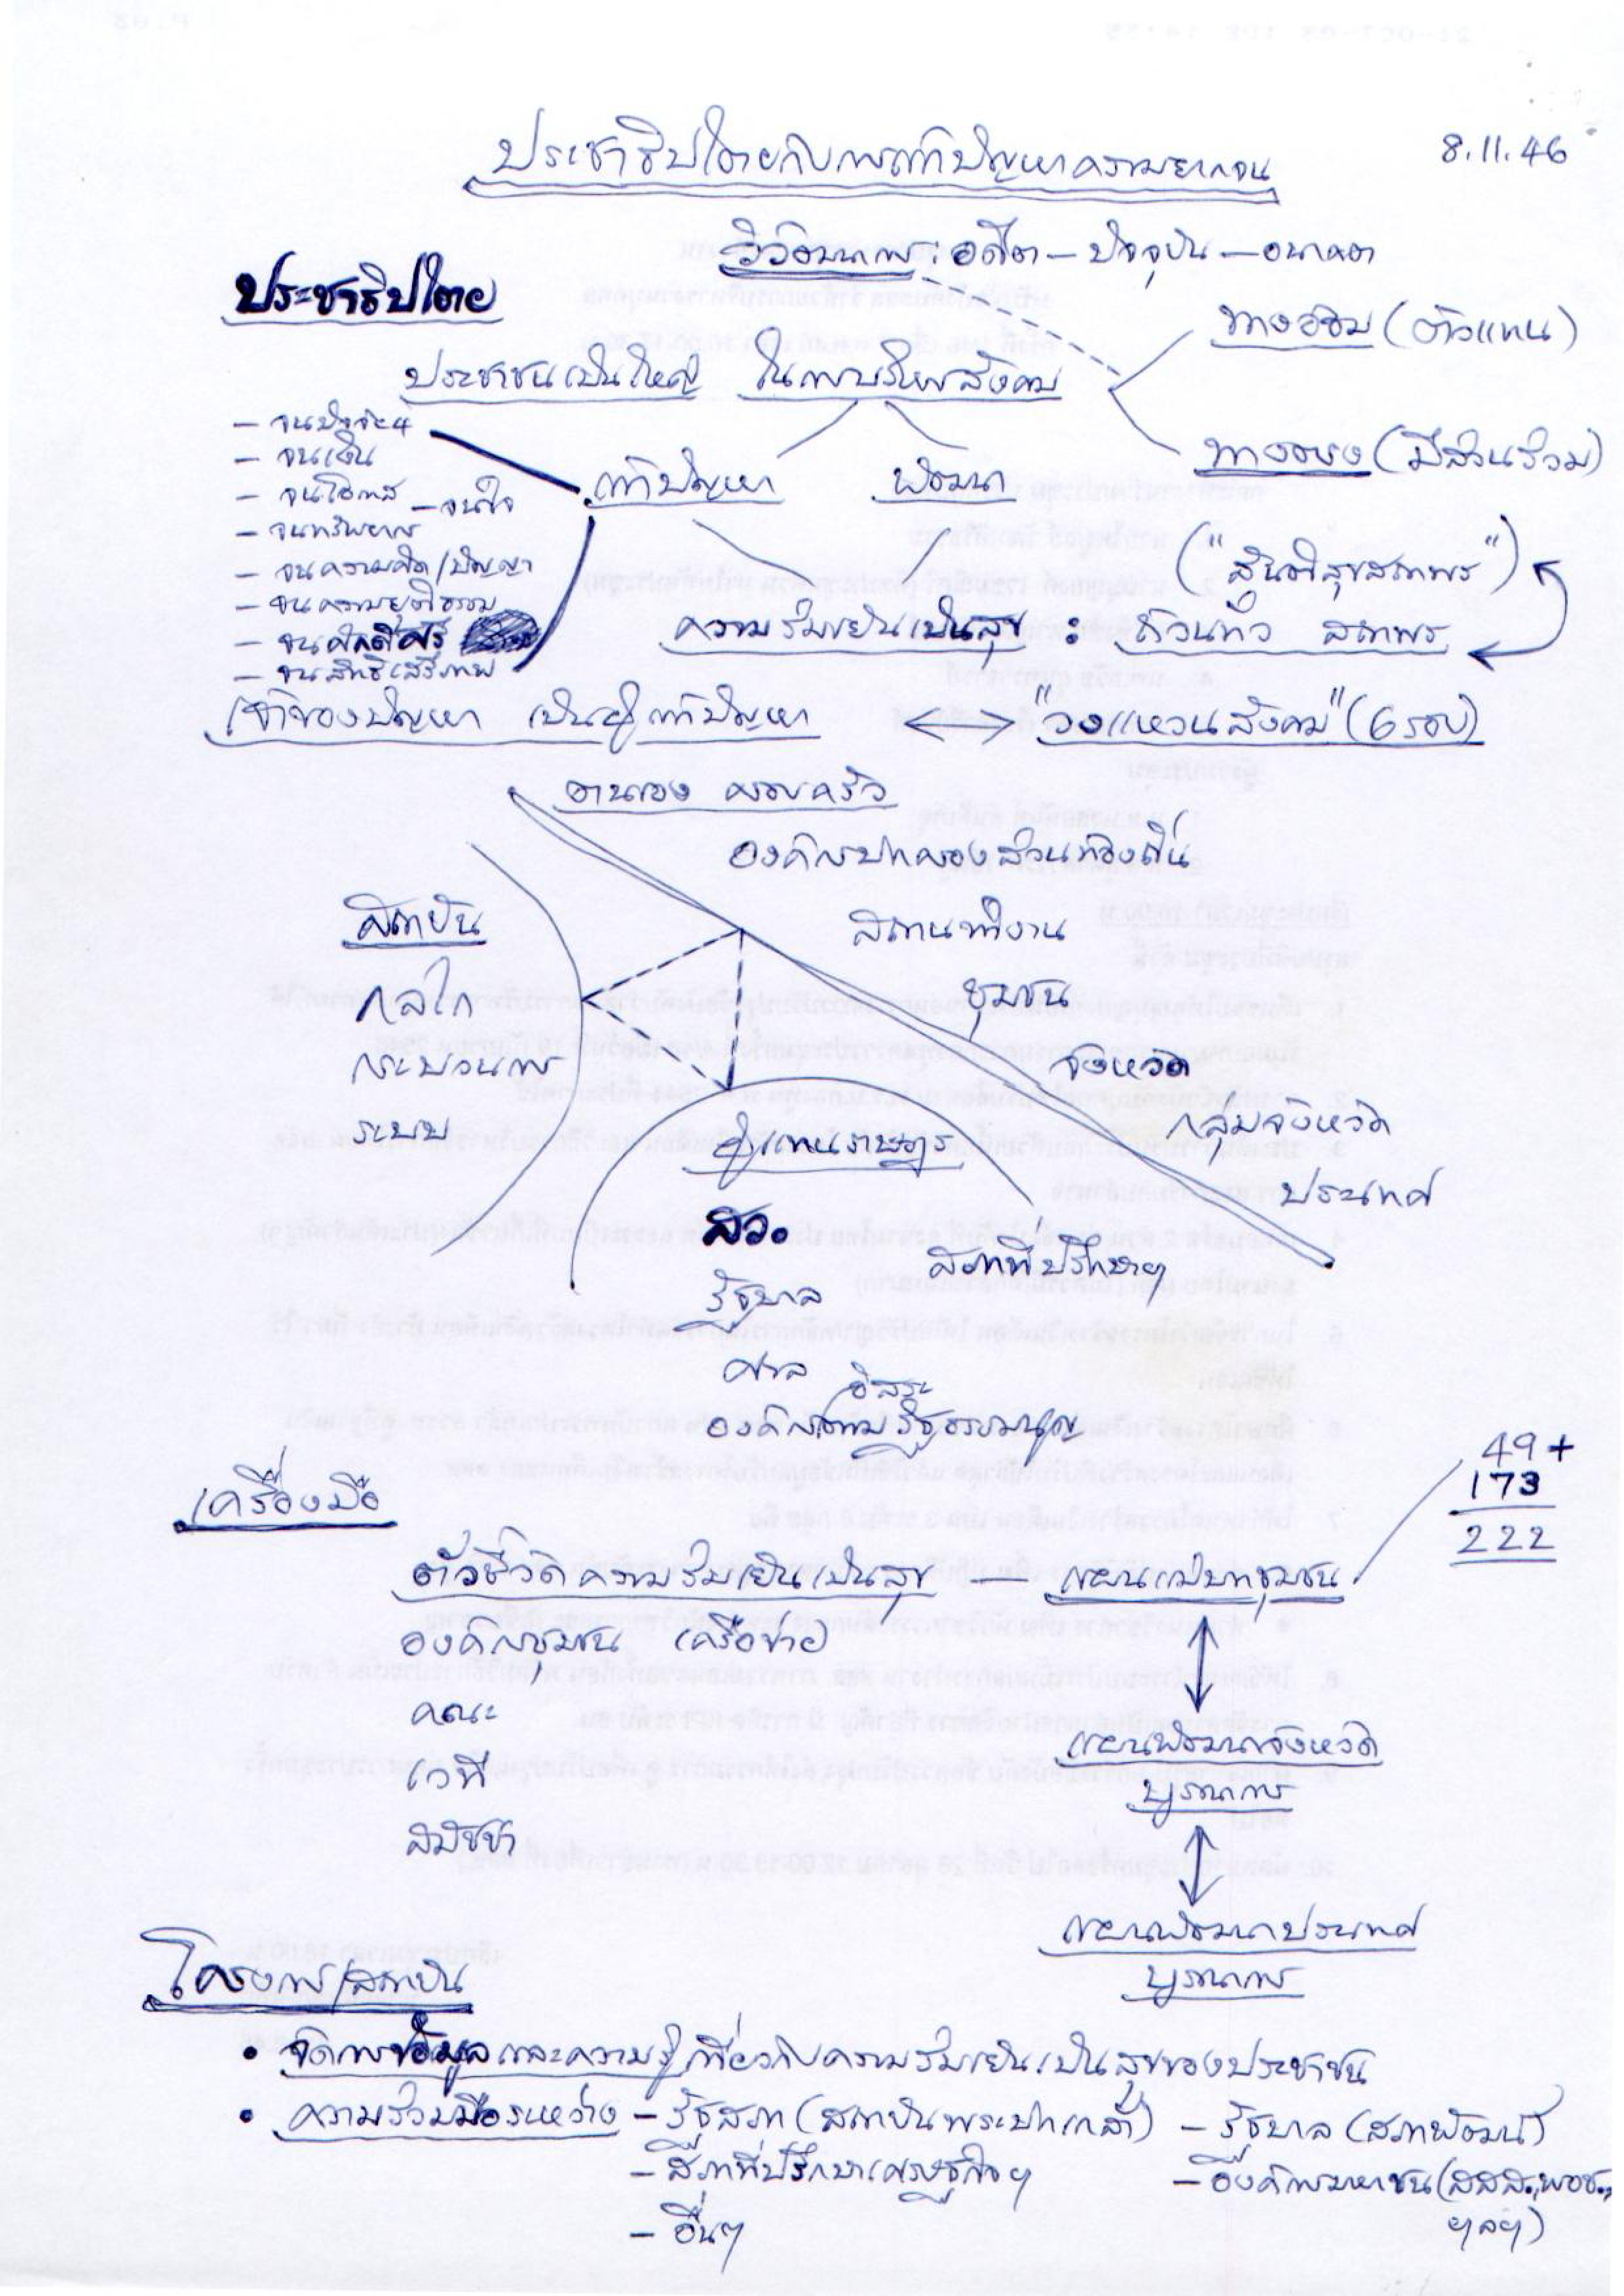 8.11.46
ประชาธิปไตยกับการแก้ปัญหาความยากจน
วิวัฒนาการ : อดีต – ปัจจุบัน – อนาคต
ประชาธิปไตย
ทางอ้อม (ตัวแทน)
ประชาชนเป็นใหญ่ ในการบริหารสังคม
ทางตรง (มีส่วนร่วม)
– จนปัจจัย 4
– จนเงิน
– จนโอกาส – จนใจ
– จนทรัพยากร
– จนความคิด/ปัญญา
– จนความยุติธรรม
– จนศักดิ์ศรี
– จนสิทธิเสรีภาพ
แก้ปัญหา พัฒนา
("สันติสุขสถาพร")
ความร่มเย็นเป็นสุข : ถ้วนทั่ว สถาพร
เจ้าของปัญหา เป็นผู้แก้ปัญหา <—> "วงแหวนสังคม" (6 รอบ)
ตนเอง ครอบครัว
องค์กรปกครองส่วนท้องถิ่น
สถานที่งาน
ชุมชน
จังหวัด
กลุ่มจังหวัด
ประเทศ
สถาบัน
กลไก
กระบวนการ
ระบบ
ผู้แทนราษฎร
สว.
สภาที่ปรึกษาฯ
รัฐบาล
ศาล
องค์กรอิสระตามรัฐธรรมนูญ
เครื่องมือ
49 +
173
222
ตัวชี้วัดความร่มเย็นเป็นสุข — แผนแม่บทชุมชน
องค์กรชุมชน (เครือข่าย)
คณะ
เวที
สมัชชา
แผนพัฒนาจังหวัด
บูรณาการ
แผนพัฒนาประเทศ
บูรณาการ
โครงการ/สถาบัน
• จัดการข้อมูลและความรู้เกี่ยวกับความร่มเย็นเป็นสุขของประชาชน
• ความร่วมมือระหว่าง – รัฐสภา (สถาบันพระปกเกล้า) – รัฐบาล (สภาพัฒน์)
– สภาที่ปรึกษาเศรษฐกิจฯ – องค์การมหาชน (สสส., พอช.,
ฯลฯ)
– อื่นๆ